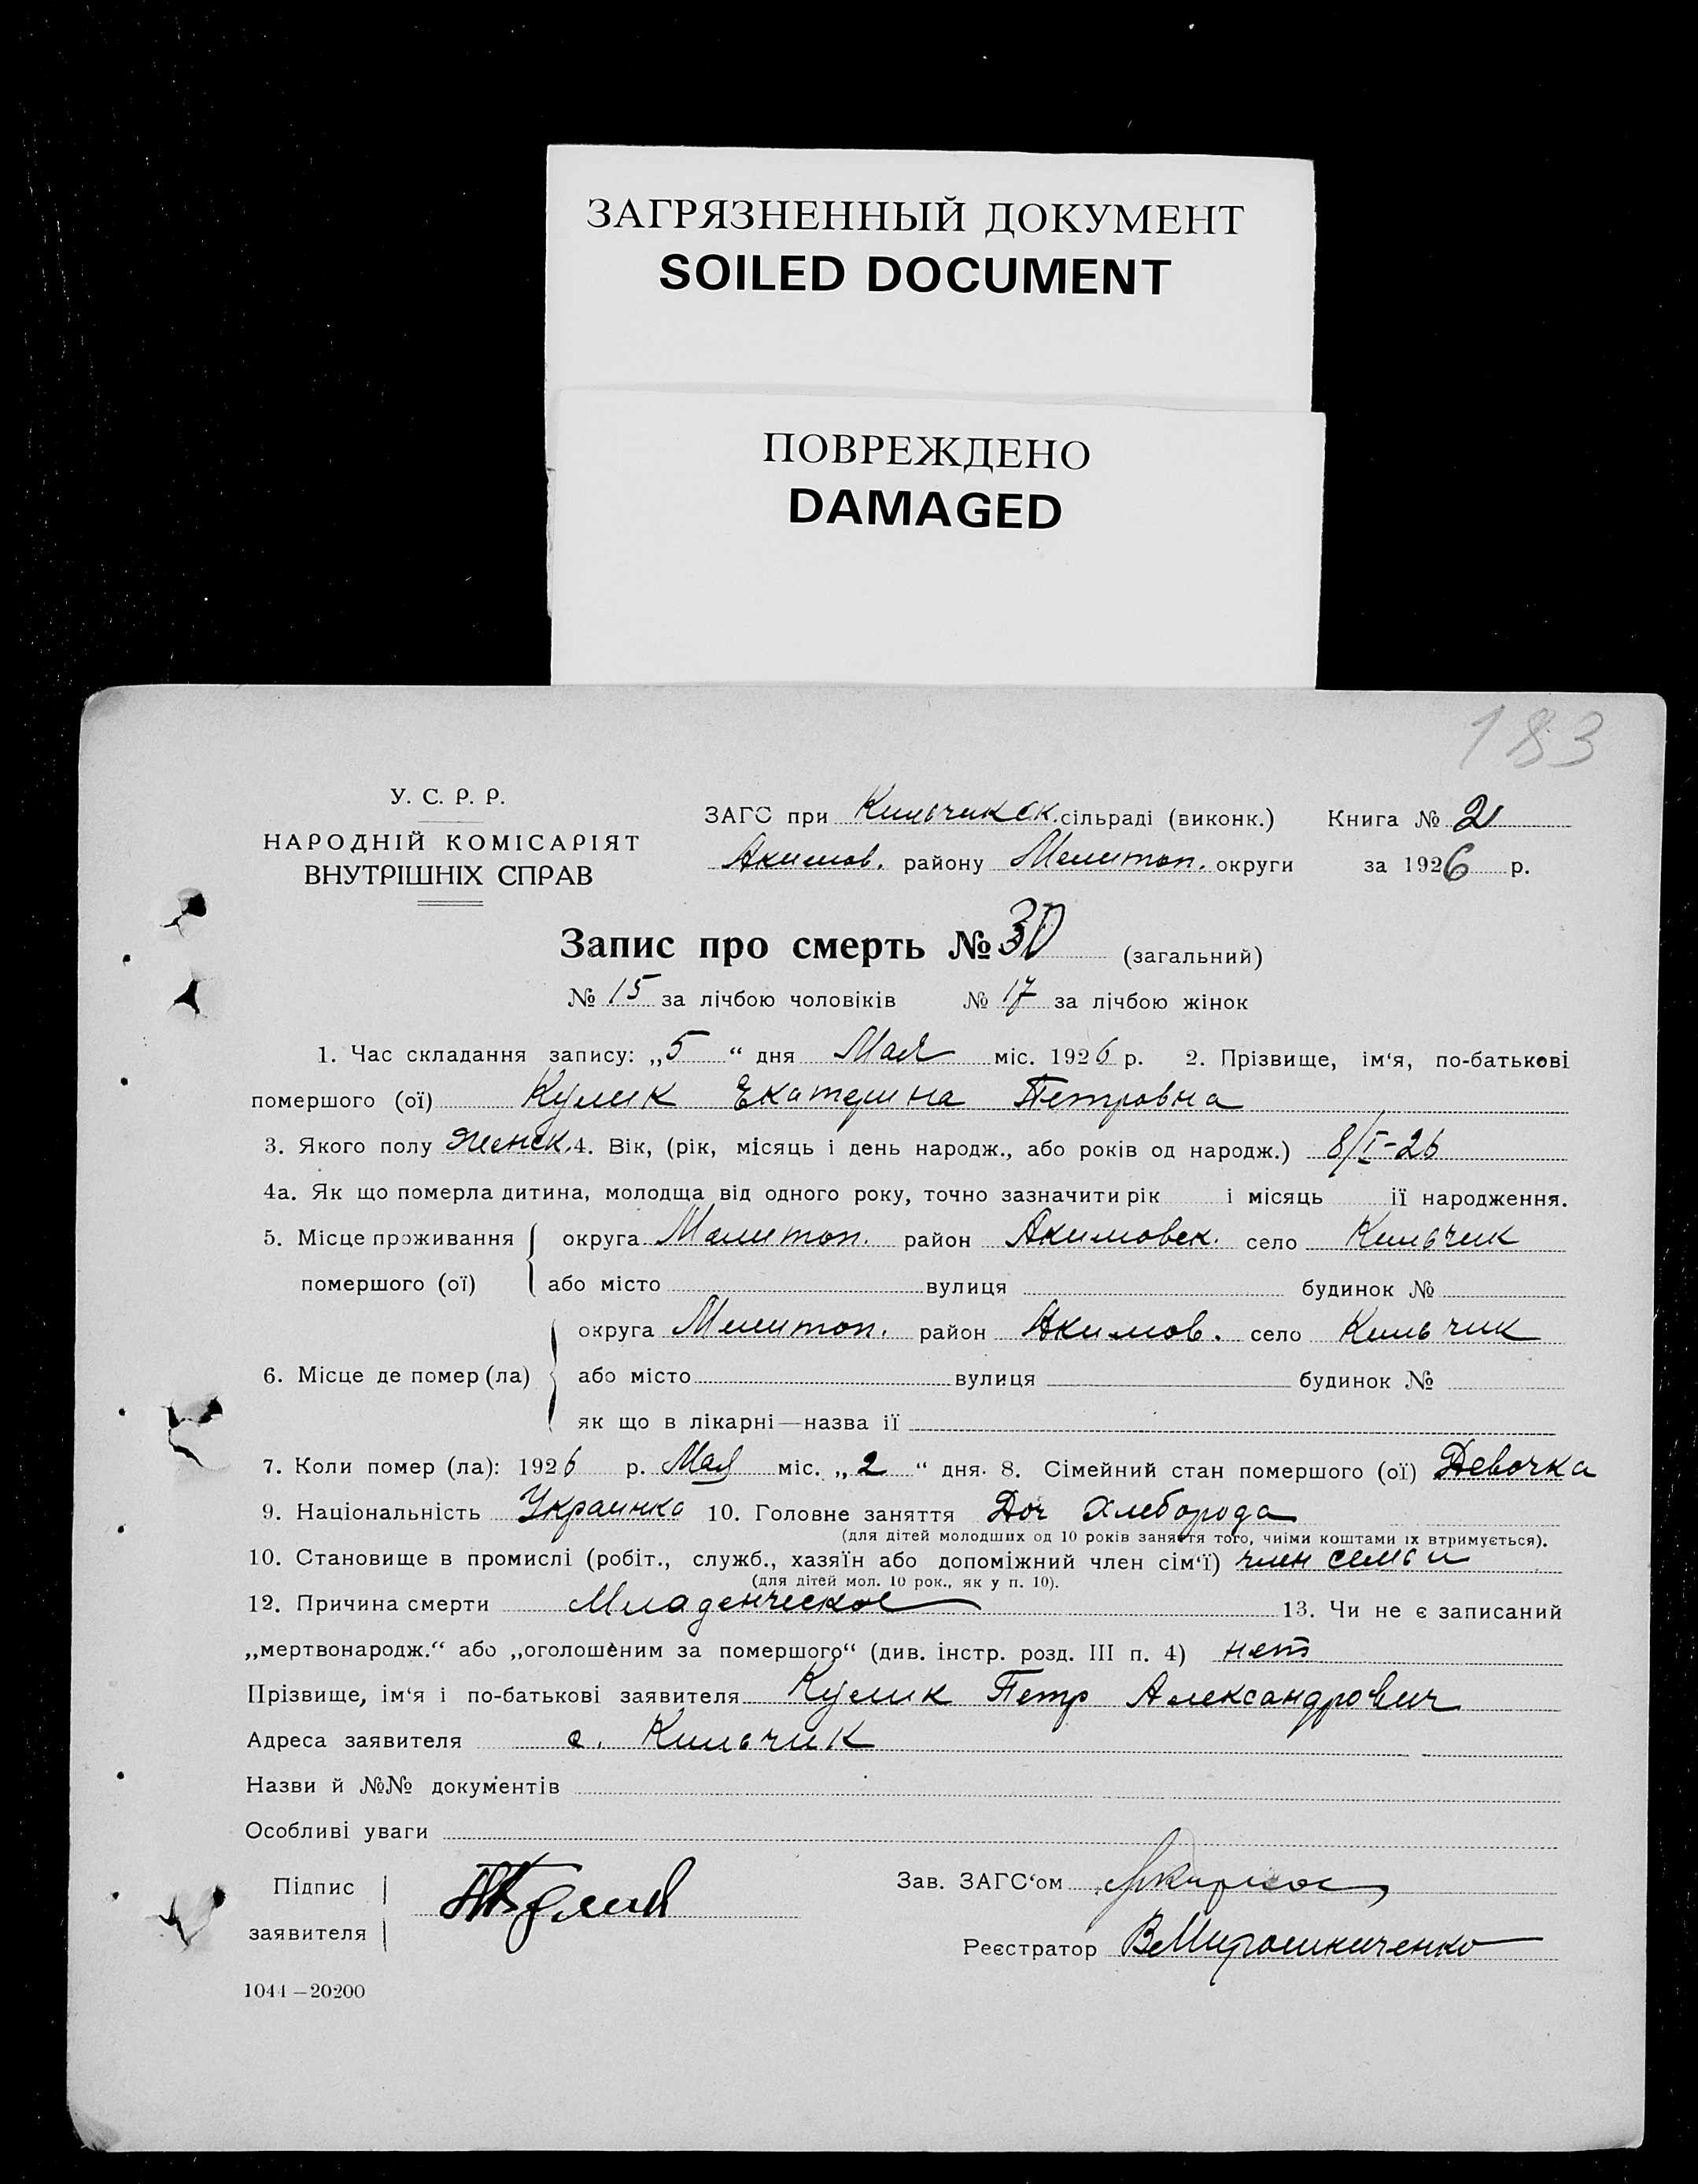 ЗАГРЯЗНЕННЫЙ ДОКУМЕНТ
SOILED DOCUMENT
ПОВРЕЖДЕНО
DAMAGED
183
У. С. Р. Р.
НАРОДНІЙ КОМІСАРІЯТ
ВНУТРІШНІХ СПРАВ
ЗАГС при Кильчикск. сільраді (виконк.) Книга № 2
Акимов. району Мелитоп. округи за 1926 р.
Запис про смерть № 30 (загальний)
№ 15 за лічбою чоловіків № 17 за лічбою жінок
1. Час складання запису: „5“ дня Мая міс. 1926 р. 2. Прізвище, ім‘я, по-батькові
помершого (ої) Кулик Екатерина Петровна
3. Якого полу женск. 4. Вік, (рік, місяць і день народж., або років од народж.) 8/I-26
4а. Як що померла дитина, молодща від одного року, точно зазначити рік і місяць ії народження.
5. Місце проживання округа Мелитоп. район Акимовск. село Кильчик
помершого (ої) або місто вулиця будинок №
округа Мелитоп. район Акимов. село Кильчик
6. Місце де помер (ла) або місто вулиця будинок №
як що в лікарні—назва ії
7. Коли помер (ла): 1926 р. Мая міс. „2“ дня. 8. Сімейний стан помершого (ої) Девочка
9. Національність Украинка 10. Головне заняття Доч Хлеборода
(для дітей молодших од 10 років заняття того, чиїми коштами їх втримується).
10. Становище в промислі (робіт., служб., хазяїн або допоміжний член сім‘ї) член семьи
(для дітей мол. 10 рок., як у п. 10).
12. Причина смерти Младенческое 13. Чи не є записаний
„мертвонародж.“ або „оголошеним за помершого“ (див. інстр. розд. III п. 4) нет
Прізвище, ім‘я і по-батькові заявителя Кулик Петр Александрович
Адреса заявителя с. Кильчик
Назви й №№ документів
Особливі уваги
Підпис Зав. ЗАГС‘ом
заявителя
Реєстратор В Мирошниченко
1044—20200